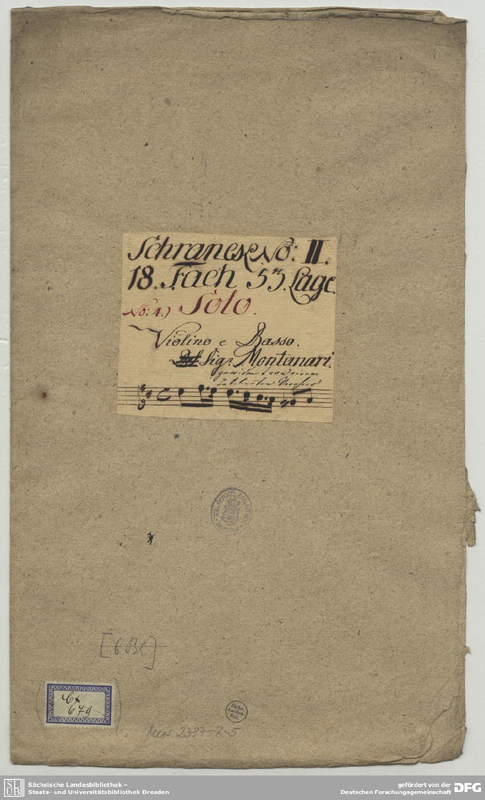 Schranck No: II.
18. Fach 53. Lage.
No: 4.) Solo.
Violino e Basso.
Sigr: Montanari.
[6 Bl]
Cx
679
Mus. 2387-R-5
SLUB
Sächsische Landesbibliothek –
Staats- und Universitätsbibliothek Dresden
gefördert von der
Deutschen Forschungsgemeinschaft
DFG